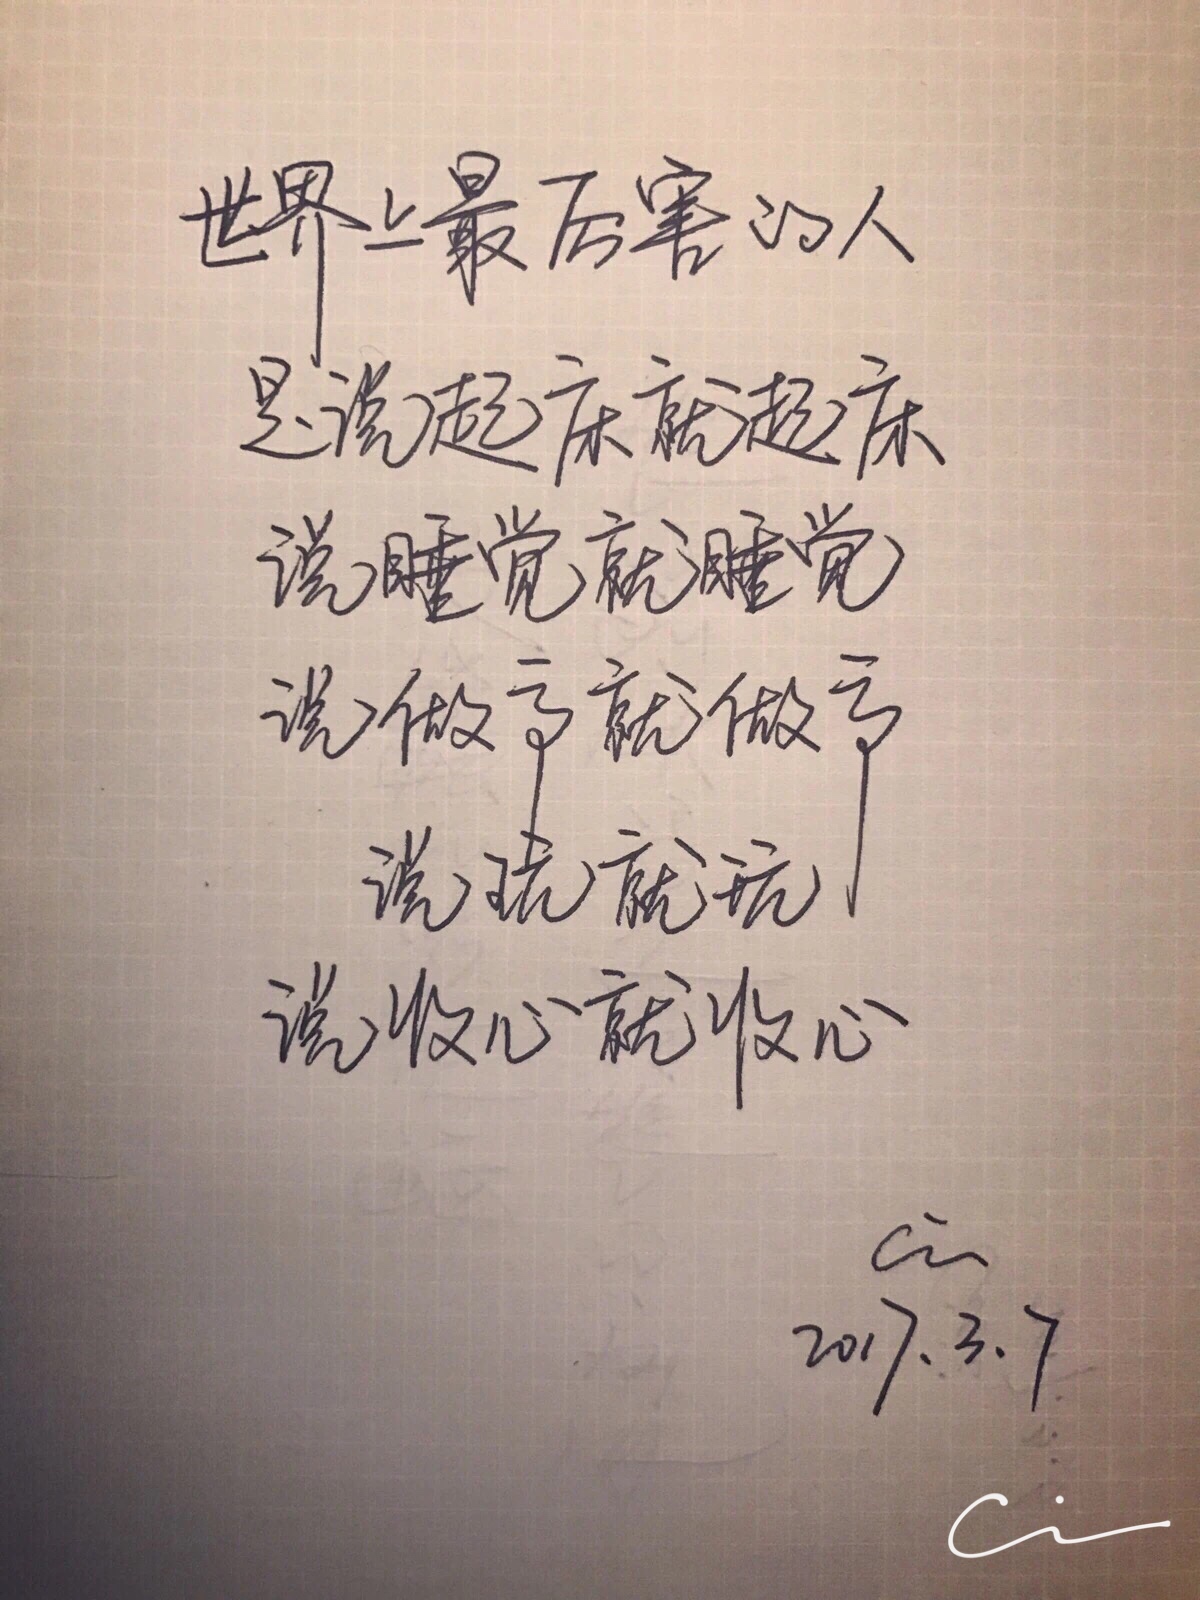 世界上最厉害的人
是说起床就起床
说睡觉就睡觉
说做事就做事
说玩就玩
说收心就收心
Ci
2017.3.7
Ci